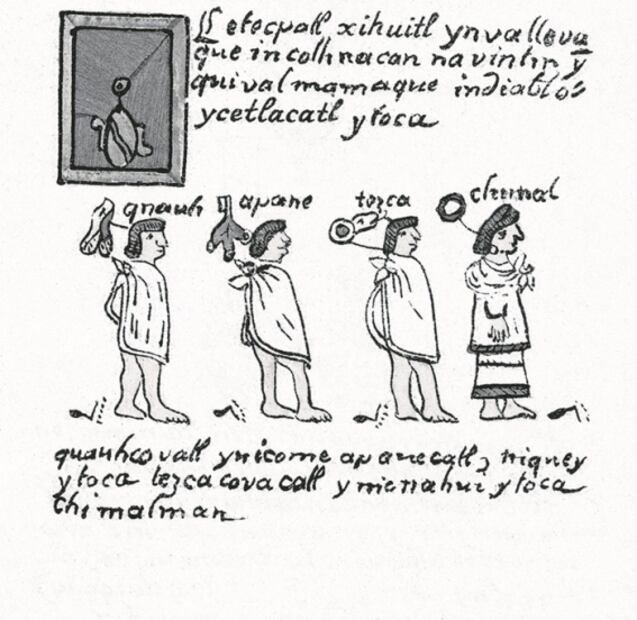 ce tecpatl xihuitl ynvalleva
que incolhuacan navintin y
quivalmamaque indiablos
ycetlacatl ytoca
quauh
apane
tezca
chimal
quauhcovatl ynicome apanecatl, niquey
ytoca tezcacovacatl ynicnahui ytoca
chimalman